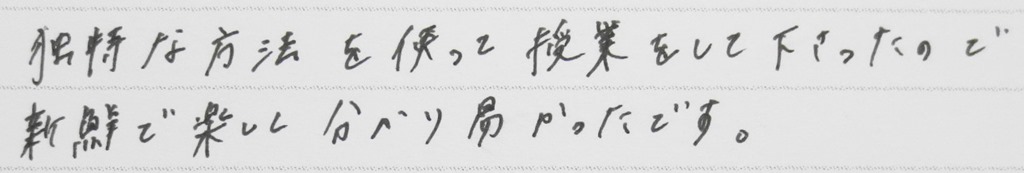 独特な方法を使って授業をして下さったので
新鮮で楽しく分かり易かったです。